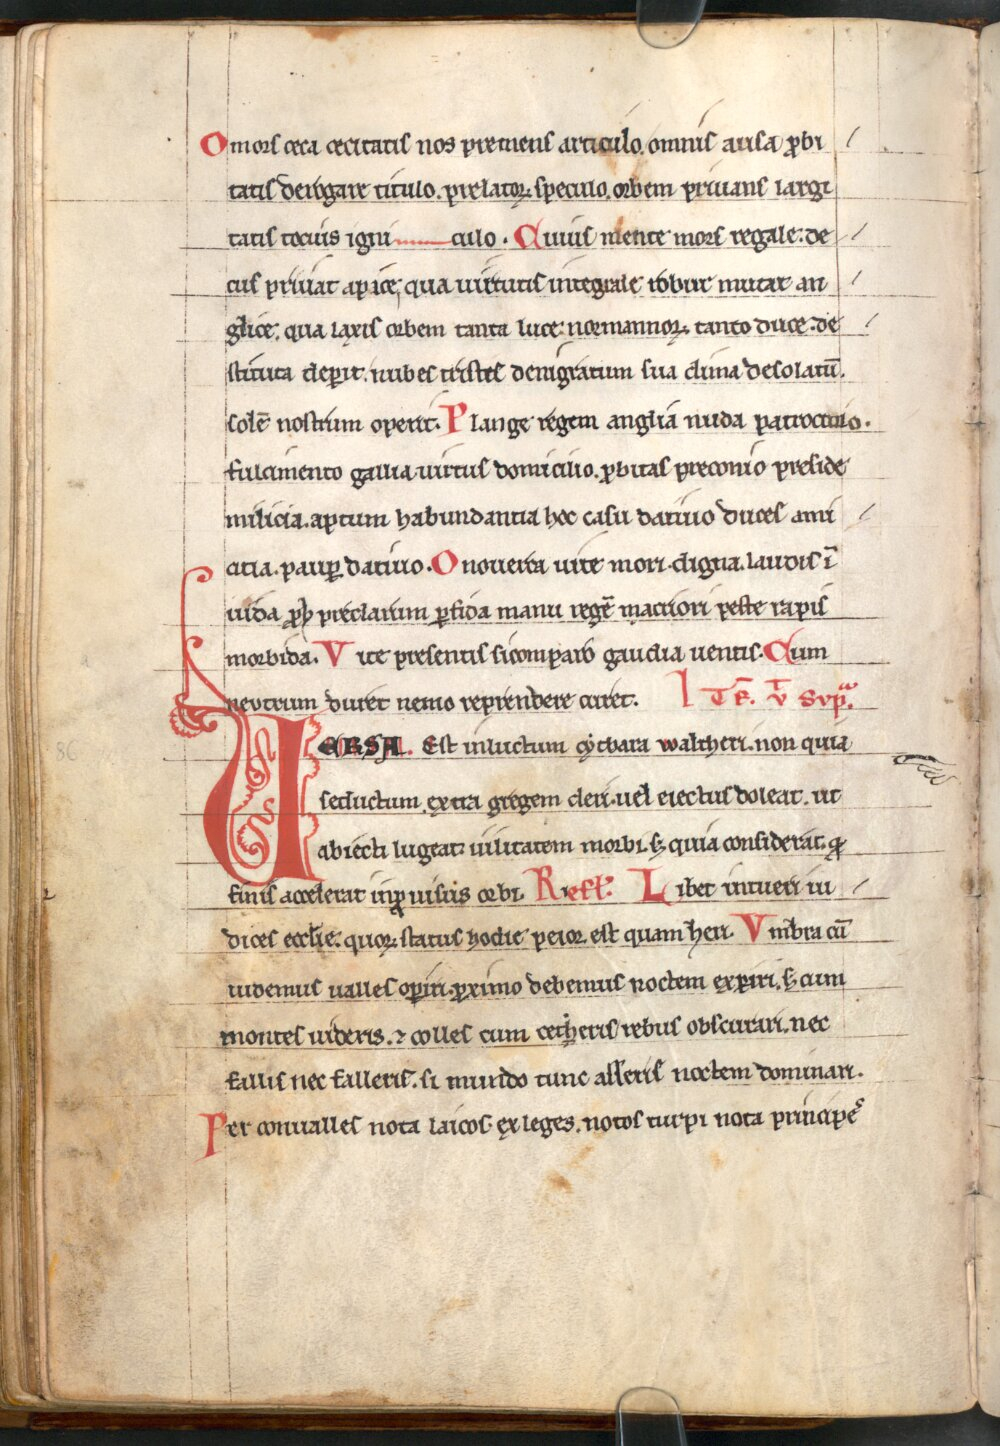 O mors ceca cecitatis nos premens articulo. omnis ausa ꝓbi
tatis denigare titulo. prelatoꝝ speculo. orbem priuans largi
tatis tocius igni culo. Cuius mente mors regale: de
cus priuat apice, qua uirtutis integrale robur mutat an
glice. qua laxis orbem tanta luce: normannoꝝ tanto duce. de
stituta deperit. nubes tristes denigratum sua clima desolatū.
solē nostrum operit. Plange regem angliā nuda patrocinio.
fulcimento gallia. uirtus domicilio. ꝓbitas preconio preside
milicia. aptum habundantia hoc casu datiuo duces ami
citia. pauꝑ datiuo. O nouerca uite mori digna. laudis ī
uida preclarum ꝑfida manu regē maturiori peste rapis
morbida. Vite presentis si comparo gaudia uentis. Cum
neutrum duret nemo reprendere curet.
VERSA. Est in luctum cythara waltheri. non quia
seductum extra gregem cleri. uel eiectus doleat. ut
abiecti lugeat: uilitatem morbi. ꝫ quia considerat. ꝙ
finis accelerat inꝓuisus orbi. Refl. Libet intueri iu
dices ecclīe. quoꝝ status hodie peior est quam heri. Vmbra cū
uidemus ualles oꝑiri. ꝓximo debemus noctem exꝑiri. ꝫ cum
montes uideris. ⁊ colles cum ceteris rebus obscurari. nec
fallis nec falleris. si mundo tunc asseris noctem dominari.
Per conualles nota laicos exleges. notos turpi nota principes